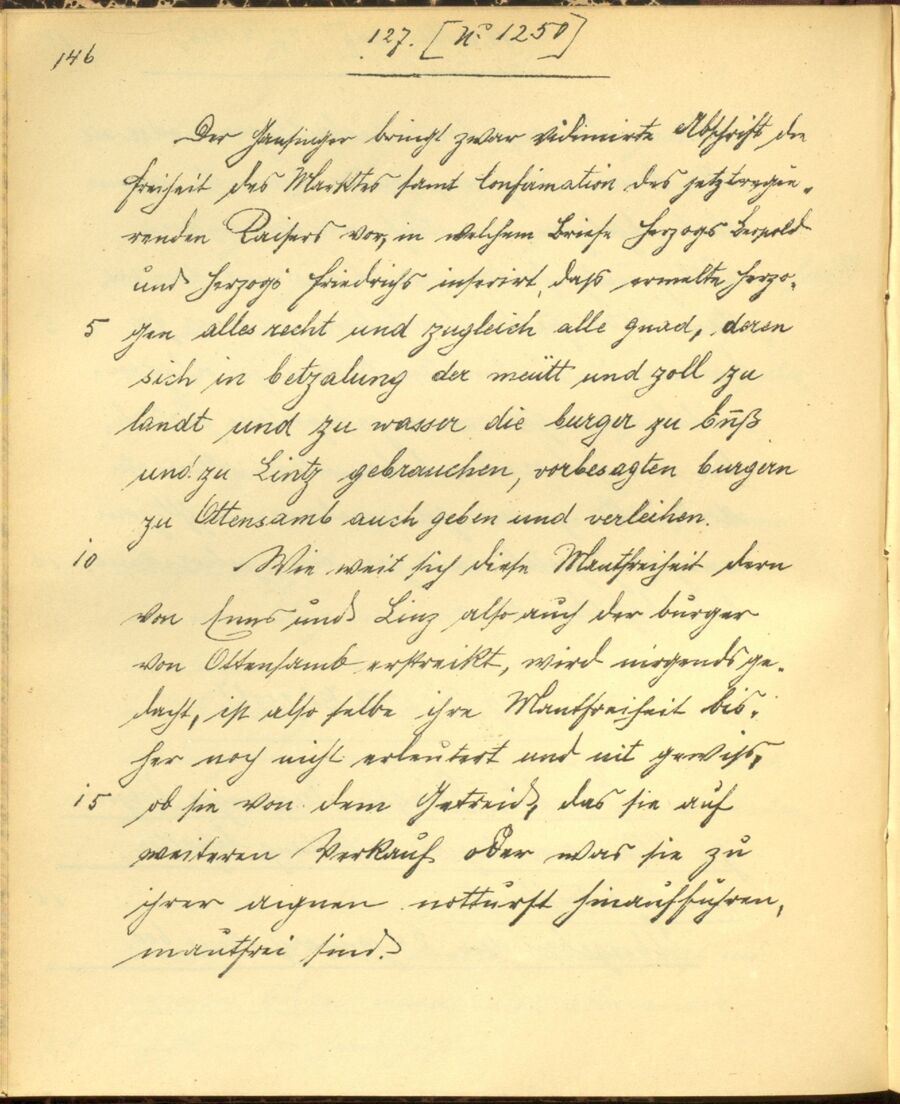 146
127. [No 1250]
Der Hansinger bringt zwar vidimirte Abschrift der
freiheit des Marktes samt Confirmation des jetztregie-
renden Kaisers vor, in welchem briefe Herzogs Leopold
und Herzogs Friedrichs inserirt, dass ermelte Herzo-
5 gen alles recht und zugleich alle gnad, deren
sich in betzalung der meütt und zoll zu
landt und zu wasser die burger zu Enß
und zu Lintz gebrauchen, vorbesagten burgern
zu Ottensamb auch geben und verleihen.
10 Wie weit sich diese Mautfreiheit deren
von Enns und Linz also auch der burger
von Ottensamb erstreikt, wird nirgends ge-
dacht, ist also selbe ihre Mautfreiheit bis-
her noch nicht erleutert und nit gewiss,
15 ob sie von dem Getreid, das sie auf
weiteren Verkauf oder was sie zu
ihrer aignen notturft hinaufführen,
mautfrei sind.